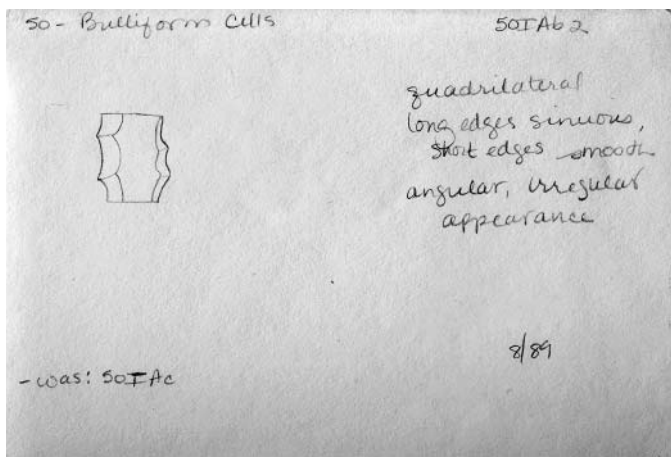 50 - Bulliform Cells
50IAb2
quadrilateral
long edges sinuous,
short edges smooth
angular, irregular
appearance
8/89
- was: 50IAc